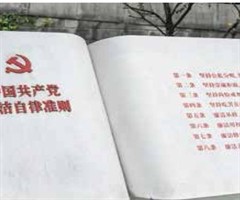 中国共产党
洁自律准则
第一条 坚持公私分明,
第二条 坚持崇廉拒腐,
第三条 坚持尚俭戒奢
第四条 坚持吃苦在
第五条 廉洁从政
第六条 廉洁用权
第七条 廉洁修
第八条 廉洁齐